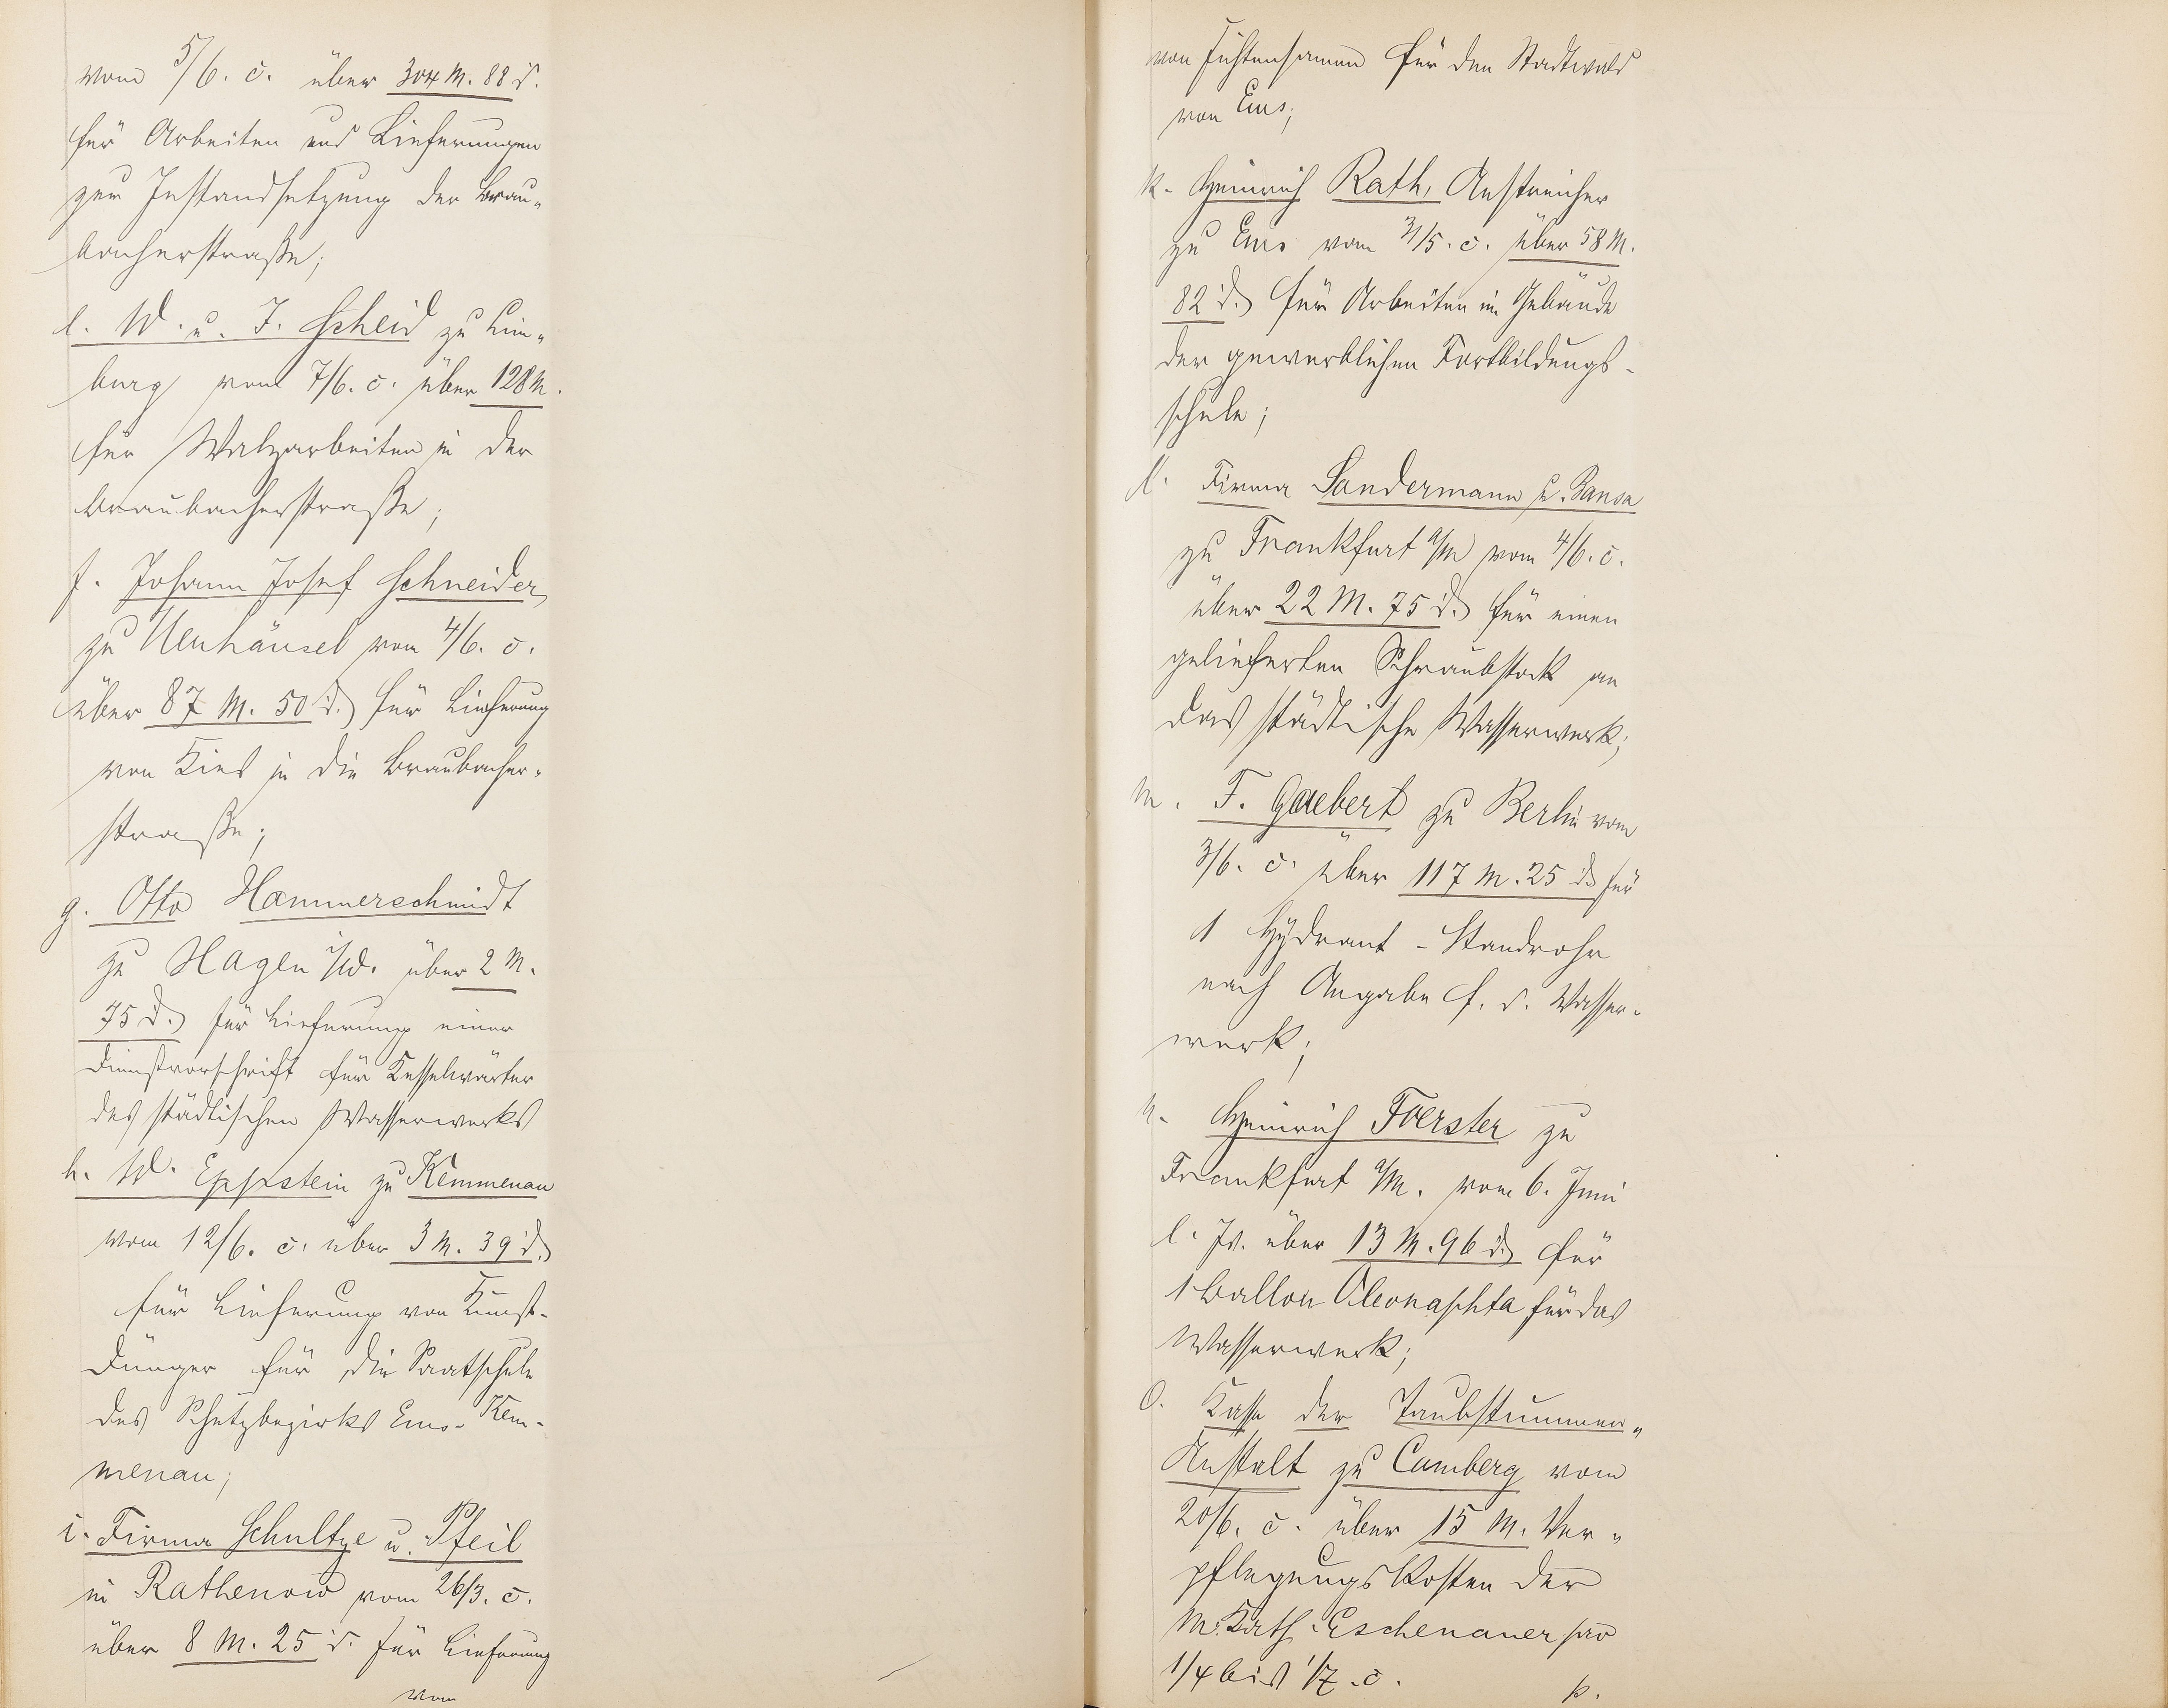 vom 5/6. c. über 304 M. 88 d.
für Arbeiten und Lieferungen
zur Instandsetzung der Brau„
bacherstraße;
e. W. u. J. Scheid zu Lim„
burg vom 7/6. c. über 128 M.
für Walzarbeiten in der
Braubacherstraße;
f. Johann Josef Schneider
zu Neuhäusel vom 4/6. c.
über 87 M. 50 d. für Lieferung
von Kies in die Braubacher„
straße;
g. Otto Hammerschmidt
zu Hagen i/W. über 2 M.
75 d. für Lieferung einer
Dienstvorschrift für Kesselwärter
des städtischen Wasserwerks
h. W. Eppstein zu Kemmenau
vom 12/6. c. über 3 M. 39 d.
für Lieferung von Kunst-
dünger für die Saatschule
des Schutzbezirks Ems-Kem-
menau;
i. Firma Schultze u. Pfeil
in Rathenow vom 26/3. c.
über 8 M. 25 d. für Lieferung
von
von Fichtensamen für den Stadtwald
von Ems;
k. Heinrich Rath, Anstreicher
zu Ems vom 31/5. c. über 58 M.
82 d. für Arbeiten im Gebäude
der gewerblichen Fortbildungs-
schule;
l. Firma Sandermann u. Bansa
zu Frankfurt a/M vom 4/6. c.
über 22 M. 75 d. für einen
gelieferten Schraubstock an
das städtische Wasserwerk;
m. F. Gaebert zu Berlin vom
3/6. c. über 117 M. 25 d. für
1 Hydrant-Standrohr
nach Angabe f. d. Wasser„
werk;
n. Heinrich Foerster zu
Frankfurt a/M. vom 6. Juni
l. Js. über 13 M. 96 d. für
1 Ballon Oleonaphta für das
Wasserwerk;
o. Kasse der Taubstummen„
Anstalt zu Camberg vom
20/6. c. über 15 M. Ver„
pflegungskosten der
M. Kath. Eschenauer pro
1/4 bis 1/7. c.
p.